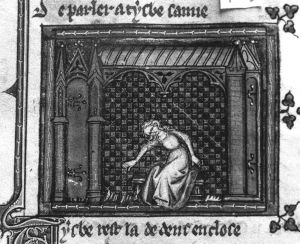 De parler a tysbe samie
Tysbe rest la dedenz enclose